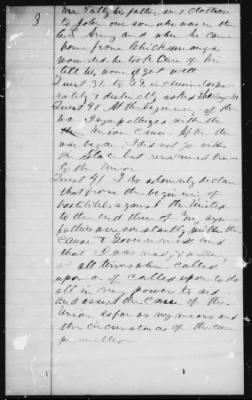 3
Mr Kelly his father, and clothes
to John one son who was in the
Army and when he came
home from Chickamauga
wounded he took care of him
till his wound got well
Quest 31, to 39 inclusive
Quest 40 At the beginning of the
war I sympathized with the
the Union cause. After the
war began I did not go with
the State but remained true
to the Union
Quest 41 I do solemnly declare
that from the beginning of
hostilities against the United
to the end there of my sym
pathies were constantly with the
cause & Government and
that I was ready & willing
at all times when called
upon or if called upon to do
all in my power to aid
and assist the cause of the
Union so far as my means and
the circumstances of the case
permitted